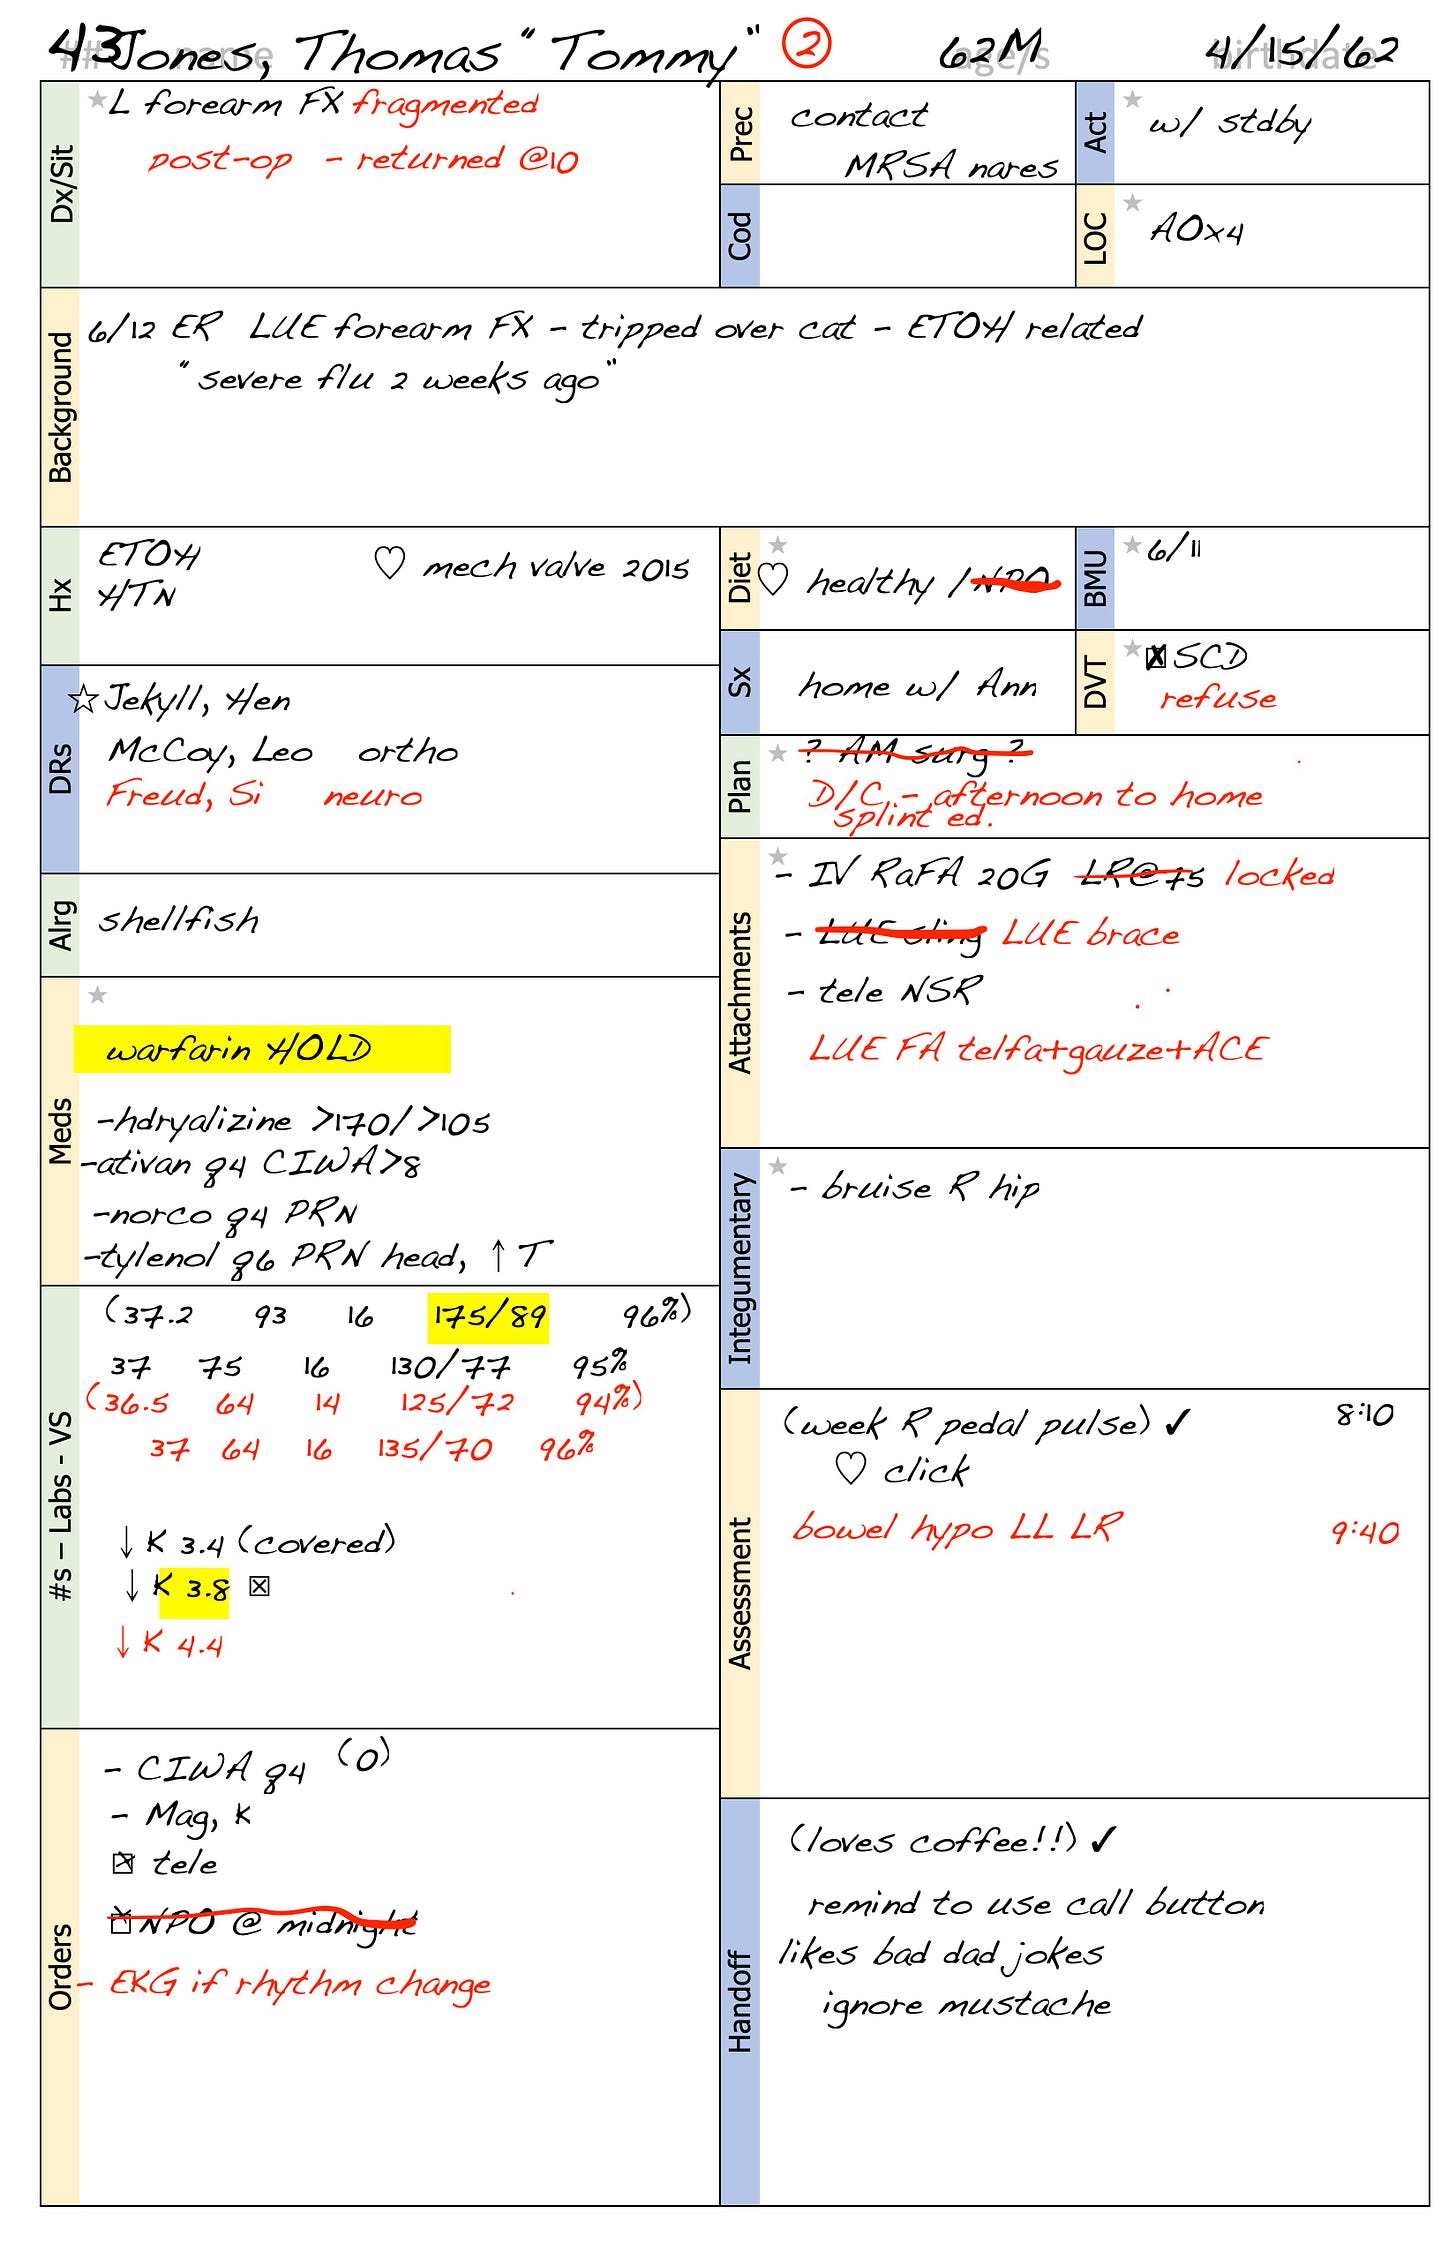 43 Jones, Thomas "Tommy" ② 62M 4/15/62
## name age/s birthdate
Dx/Sit
★ L forearm FX fragmented
post-op - returned @10
Prec
contact
MRSA nares
Act
★ w/ stdby
Cod
LOC
★ AOx4
Background
6/12 ER LUE forearm FX - tripped over cat - ETOH related
"severe flu 2 weeks ago"
Hx
ETOH ♡ mech valve 2015
HTN
Diet
★
♡ healthy / NPO
BMU
★ 6/11
DRs
☆ Jekyll, Hen
McCoy, Leo ortho
Freud, Si neuro
Sx
home w/ Ann
DVT
★ ☒ SCD
refuse
Plan
★ ? AM surg ?
D/C - afternoon to home
splint ed.
Alrg
shellfish
Attachments
★
- IV RaFA 20G LR@75 locked
- LUE sling LUE brace
- tele NSR
LUE FA telfa+gauze+ACE
Meds
★
warfarin HOLD
-hdryalizine >170/ >105
-ativan q4 CIWA>8
-norco q4 PRN
-tylenol q6 PRN head, ↑ T
Integumentary
★
- bruise R hip
#s – Labs - VS
(37.2 93 16 175/89 96%)
37 75 16 130/77 95%
(36.5 64 14 125/72 94%)
37 64 16 135/70 96%
↓ K 3.4 (covered)
↓ K 3.8 ☒
↓ K 4.4
Assessment
(week R pedal pulse) ✓ 8:10
♡ click
bowel hypo LL LR 9:40
Orders
- CIWA q4 (0)
- Mag, K
☒ tele
☒ NPO @ midnight
- EKG if rhythm change
Handoff
(loves coffee!!) ✓
remind to use call button
likes bad dad jokes
ignore mustache